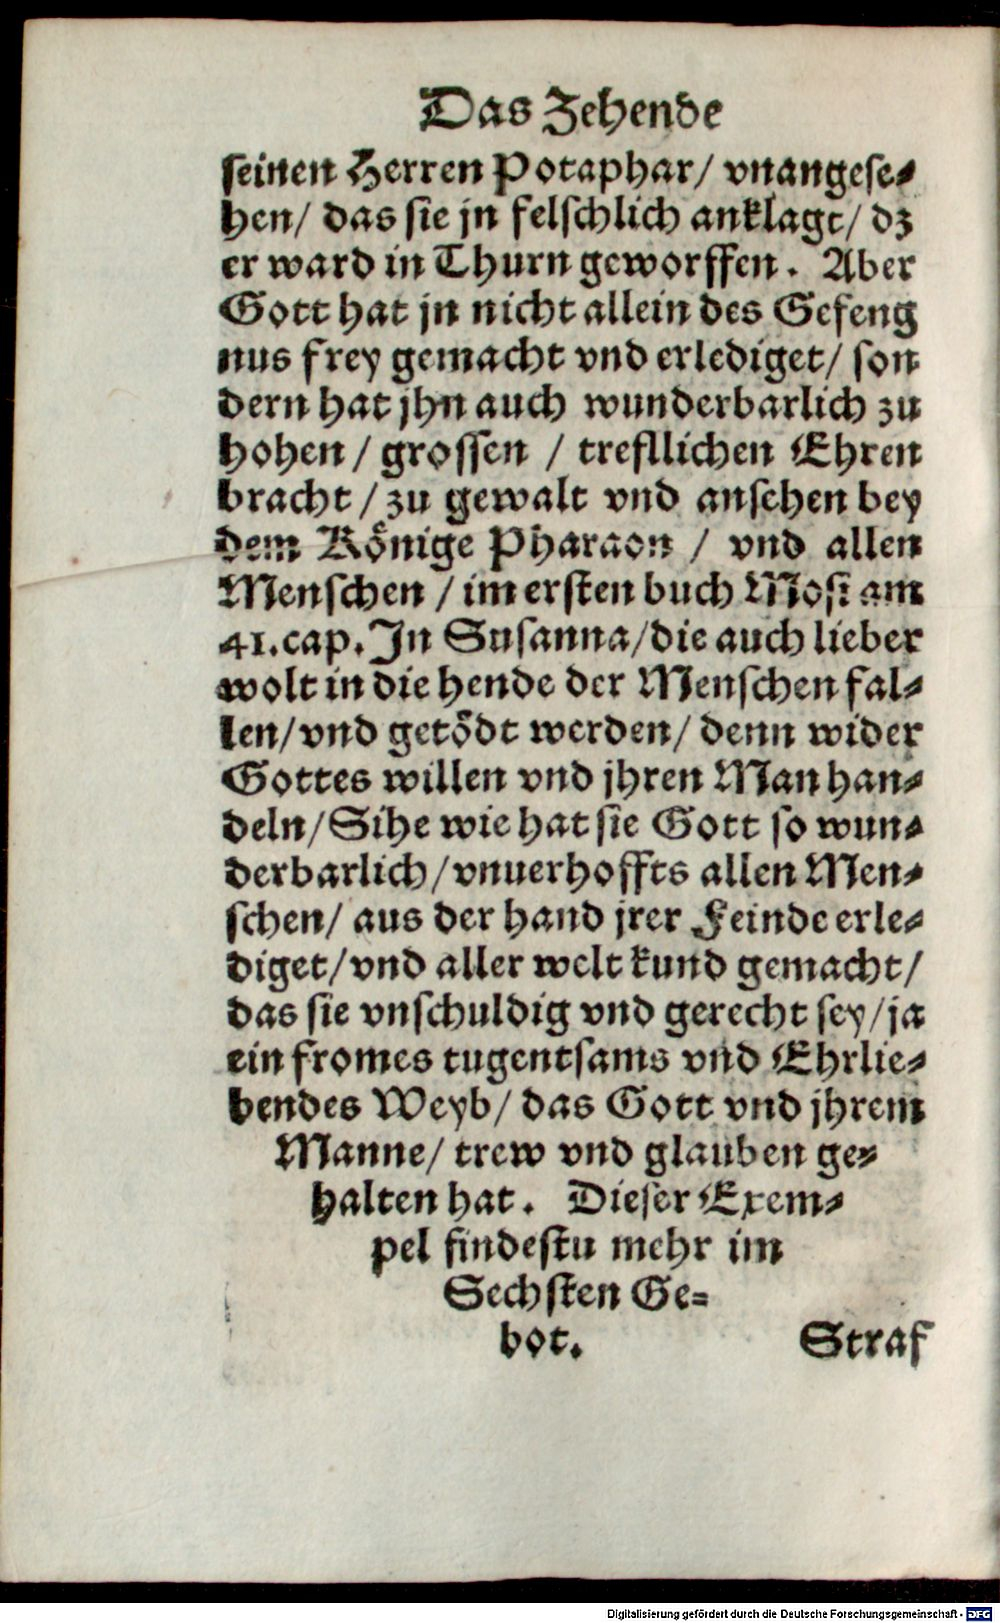 Das Zehende
seinen Herren Potaphar/ vnangese-
hen/ das sie jn felschlich anklagt/ dz
er ward in Thurn geworffen. Aber
Gott hat jn nicht allein des Gefeng
nus frey gemacht vnd erlediget/ son
dern hat jhn auch wunderbarlich zu
hohen / grossen / trefllichen Ehren
bracht / zu gewalt vnd ansehen bey
dem Könige Pharaon / vnd allen
Menschen / im ersten buch Mosi am
41. cap. In Susanna/ die auch lieber
wolt in die hende der Menschen fal-
len/ vnd getödt werden/ denn wider
Gottes willen vnd jhren Man han-
deln/ Sihe wie hat sie Gott so wun-
derbarlich/ vnuerhoffts allen Men-
schen/ aus der hand jrer Feinde erle-
diget/ vnd aller welt kund gemacht/
das sie vnschuldig vnd gerecht sey/ ja
ein fromes tugentsams vnd Ehrlie-
bendes Weyb/ das Gott vnd jhrem
Manne/ trew vnd glauben ge-
halten hat. Dieser Exem-
pel findestu mehr im
Sechsten Ge=
bot. Straf
Digitalisierung gefördert durch die Deutsche Forschungsgemeinschaft - DFG